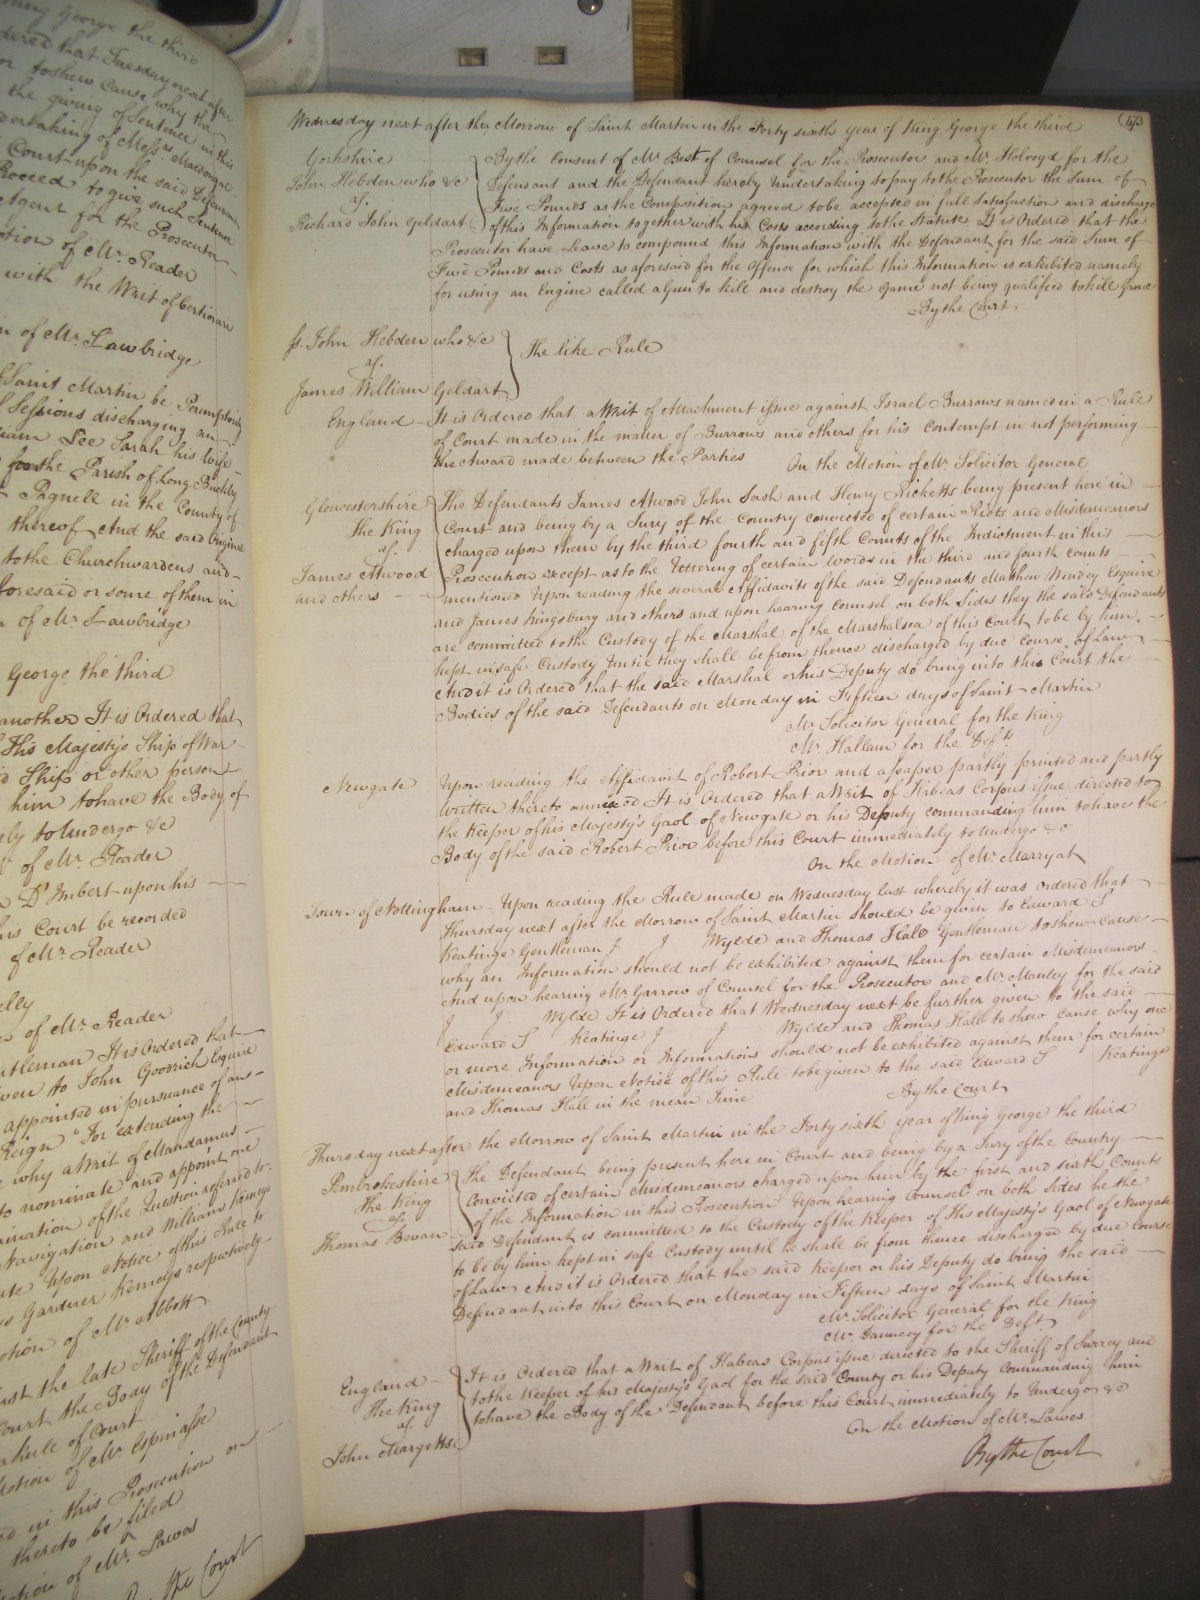 hing George the third
dered that Tuesday next after
or to shew Cause why the
the giving of Sentence in this
dertaking of Messrs. Macdougal
Court upon the said Defendant
Proceed to give such Sentence
Agent for the Prosecutor
otion of Mr. Reader
with the Writ of Certiorari
n of Mr. Lawbridge
Saint Martin be Peremptorily
Sessions discharging an
iam Lee Sarah his Wife
for the Parish of Long Buckby
Pagnell in the County of
thereof And the said Original
to the Churchwardens and
foresaid or some of them in
n of Mr. Lawbridge
George the third
another It is Ordered that
His Majesty's Ship of War
d Ship or other person
him to have the Body of
ely to Undergo &c
of Mr. Reader
D'Imbert upon his
his Court be recorded
of Mr. Reader
elly
n of Mr. Reader
ntleman It is Ordered that
ven to John Goodrich Esquire
appointed in pursuance of an
Reign "For extending the
why a Writ of Mandamus
to nominate and appoint one
mination of the Question referred to
Navigation and William Kemeys
ate Upon Notice of this Rule to
s Gardner Kemeys respectively
otion of Mr. Abbott
inst the late Sheriff of the County
Court the Body of the Defendant
a Rule of Court
Motion of Mr. Espinasse
ed in this Prosecution on
thereto be filed
otion of Mr. Lawes
By the Court
(473
Wednesday next after the Morrow of Saint Martin in the Forty sixth year of King George the third
Yorkshire
John Hebden who &c
agt.
Richard John Geldart
By the Consent of Mr. Best of Counsel for the Prosecutor and Mr. Holroyd for the
Defendant and the Defendant hereby Undertaking to pay to the Prosecutor the Sum of
Five Pounds as the Composition agreed to be accepted in full Satisfaction and discharge
of this Information together with his Costs according to the Statute It is Ordered that the
Prosecutor have Leave to compound this Information with the Defendant for the said Sum of
Five Pounds and Costs as aforesaid for the Offense for which this Information is exhibited namely
for using an Engine called a Gun to kill and destroy the Game not being qualified to kill Game
By the Court
ss. John Hebden who &c
agt.
James William Geldart
The like Rule
England - It is Ordered that a Writ of Attachment issue against Israel Burrows named in a Rule
of Court made in the matter of Burrows and others for his Contempt in not performing
the Award made between the Parties On the Motion of Mr. Solicitor General
Gloucestershire
The King
agt.
James Atwood
and others
The Defendants James Atwood John Sash and Henry Ricketts being present here in
Court and being by a Jury of the Country convicted of certain Riots and Misdemeanors
charged upon them by the third fourth and fifth Counts of the Indictment in this
Prosecution except as to the Uttering of certain Words in the third and fourth Counts
mentioned Upon reading the several Affidavits of the said Defendants Matthew Windey Esquire
and James Kingsbury and others and upon hearing Counsel on both Sides they the said Defendants
are committed to the Custody of the Marshal of the Marshalsea of this Court to be by him
kept in safe Custody Until they shall be from thence discharged by due course of Law
And it is Ordered that the said Marshal or his Deputy do bring into this Court the
Bodies of the said Defendants on Monday in Fifteen days of Saint Martin
Mr. Solicitor General for the King
Mr. Hallam for the Defts
Newgate Upon reading the Affidavit of Robert Prior and a paper partly printed and partly
written thereto annexed It is Ordered that a Writ of Habeas Corpus issue directed to
the Keeper of his Majesty's Gaol of Newgate or his Deputy commanding him to have the
Body of the said Robert Prior before this Court immediately to Undergo &c
On the Motion of Mr. Marryat
Town of Nottingham - Upon reading the Rule made on Wednesday last whereby it was Ordered that
Thursday next after the Morrow of Saint Martin should be given to Edward S
Keatinge Gentleman J J Wylde and Thomas Hall Gentleman to shew Cause
why an Information should not be exhibited against them for certain Misdemeanors
And upon hearing Mr. Garrow of Counsel for the Prosecutor and Mr. Manley for the said
J J Wylde It is Ordered that Wednesday next be further given to the said
Edward S Keatinge J J Wylde and Thomas Hall to shew cause why one
or more Information or Informations should not be exhibited against them for certain
Misdemeanors Upon Notice of this Rule to be given to the said Edward S Keatinge
and Thomas Hall in the mean Time By the Court
Thursday next after the Morrow of Saint Martin in the Forty sixth year of King George the third
Pembrokeshire
The King
agt.
Thomas Bevan
The Defendant being present here in Court and being by a Jury of the Country
Convicted of certain Misdemeanors charged upon him by the first and sixth Counts
of the Information in this Prosecution Upon hearing Counsel on both Sides he the
said Defendant is committed to the Custody of the Keeper of His Majesty's Gaol of Newgate
to be by him kept in safe Custody until he shall be from thence discharged by due course
of Law And it is Ordered that the said Keeper or his Deputy do bring the said
Defendant into this Court on Monday in Fifteen days of Saint Martin
Mr. Solicitor General for the King
Mr. Dauncey for the Deft
England
The King
agt.
John Margetts
It is Ordered that a Writ of Habeas Corpus issue directed to the Sheriff of Surrey and
to the Keeper of his Majesty's Gaol for the said County or his Deputy Commanding him
to have the Body of the Defendant before this Court immediately to Undergo &c
On the Motion of Mr. Lawes
By the Court